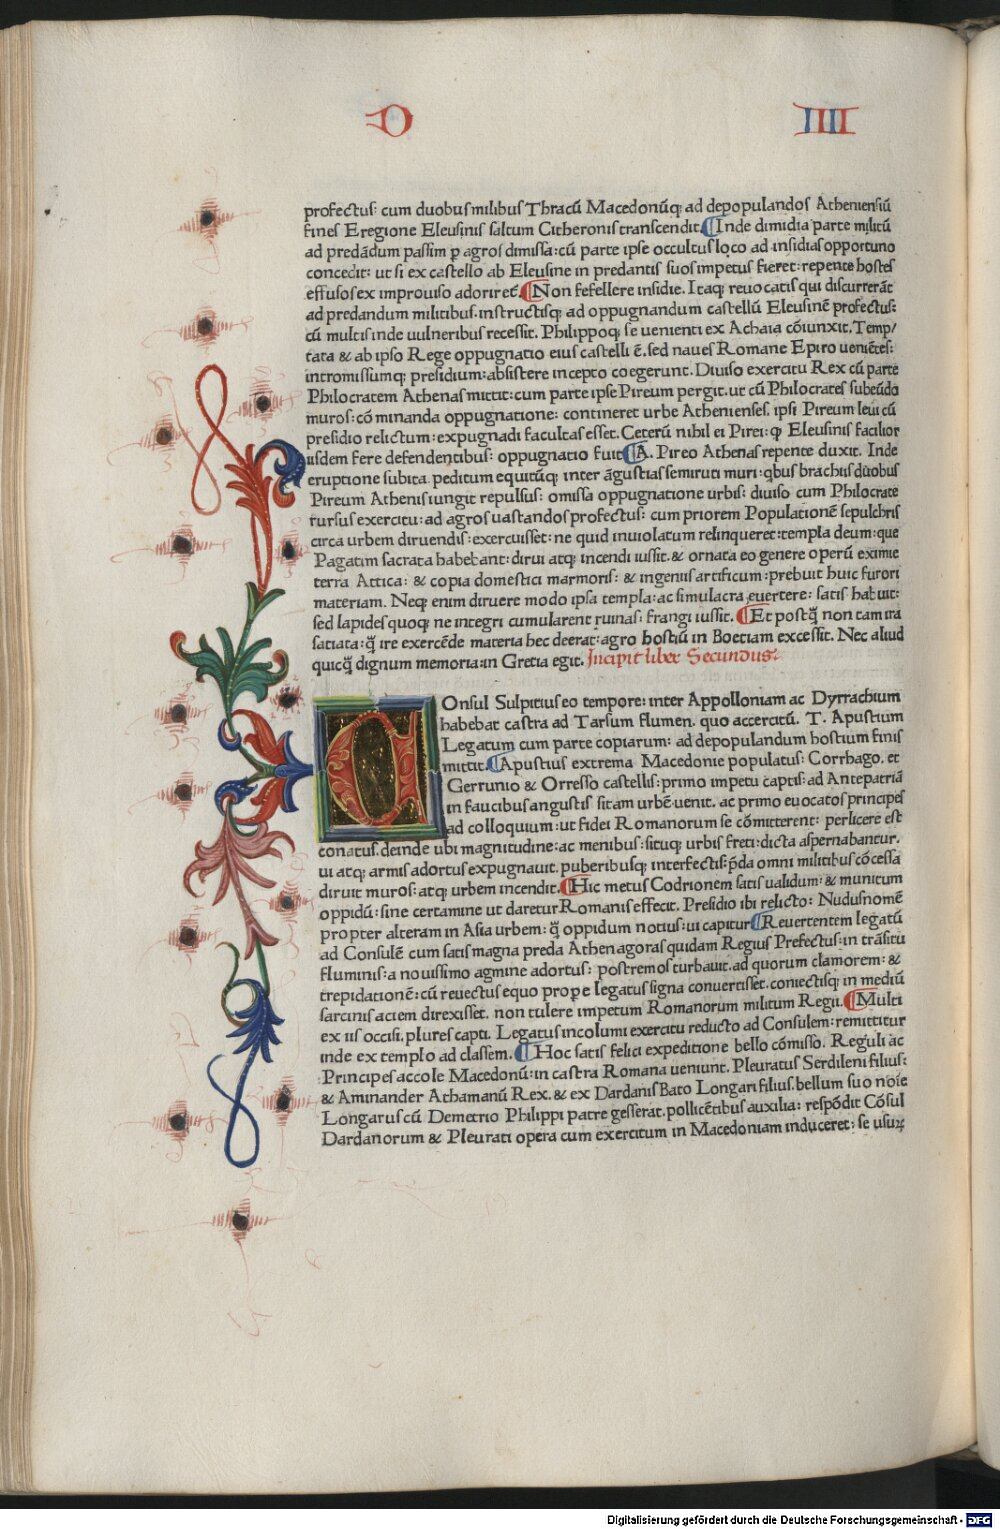 D IIII
profectus: cum duobus milibus Thracū Macedonūq; ad depopulandos Atheniensiū
fines E regione Eleusinis saltum Citheronis transcendit. Inde dimidia parte militū
ad predādum passim p agros dimissa: cū parte ipse occultus loco ad insidias opportuno
concedit: ut si ex castello ab Eleusine in predantis suos impetus fieret: repente hostes
effusos ex improuiso adoriret̄. Non fefellere insidie. Itaq; reuocatis qui discurrerāt
ad predandum militibus. instructisq; ad oppugnandum castellū Eleusinē profectus:
cū multis inde uulneribus recessit. Philippoq; se uenienti ex Achaia cōiunxit. Temp/
tata & ab ipso Rege oppugnatio eius castelli ē. sed naues Romane Epiro ueniētes:
intromissumq; presidium: absistere incepto coegerunt. Diuiso exercitu Rex cū parte
Philocratem Athenas mittit: cum parte ipse Pireum pergit. ut cū Philocrates subeūdo
muros: cō minanda oppugnatione: contineret urbe Athenienses. ipsi Pireum leui cū
presidio relictum: expugnādi facultas esset. Ceterū nihil ei Pirei: q̄ Eleusinis facilior
iisdem fere defendentibus: oppugnatio fuit A. Pireo Athenas repente duxit. Inde
eruptione subita peditum equitūq; inter āgustias semiruti muri: qbus brachiis duobus
Pireum Athenis iungit repulsus: omissa oppugnatione urbis: diuiso cum Philocrate
rursus exercitu: ad agros uastandos profectus: cum priorem Populationē sepulchris
circa urbem diruendis: exercuisset: ne quid inuiolatum relinqueret: templa deum: que
Pagatim sacrata habebant: dirui atq; incendi iussit. & ornata eo genere operū eximie
terra Attica: & copia domestici marmoris: & ingeniis artificum: prebuit huic furori
materiam. Neq; enim diruere modo ipsa templa: ac simulacra euertere: satis habuit:
sed lapides quoq; ne integri cumularent ruinas: frangi iussit. Et postq̄ non tam ira
satiata: q̄ ire exercēde materia hec deerat: agro hostiū in Boetiam excessit. Nec aliud
quicq̄ dignum memoria: in Gretia egit. Incipit liber Secundus.
COnsul Sulpitius eo tempore: inter Appolloniam ac Dyrrachium
habebat castra ad Tarsum flumen. quo accercitū. T. Apustium
Legatum cum parte copiarum: ad depopulandum hostium finis
mittit. Apustius extrema Macedonie populatus: Corrhago. et
Gerrunio & Orresso castellis: primo impetu captis: ad Antepatriā
in faucibus angustis sitam urbē uenit. ac primo euocatos principes
ad colloquium: ut fidei Romanorum se cōmitterent: perlicere est
conatus. deinde ubi magnitudine: ac menibus: situq; urbis freti: dicta aspernabantur.
ui atq; armis adortus expugnauit. puberibusq; interfectis: p̄da omni militibus cōcessa
diruit muros: atq; urbem incendit. Hic metus Codrionem satis ualidum: & munitum
oppidū: sine certamine ut daretur Romanis effecit. Presidio ibi relicto: Nudus nomē
propter alteram in Asia urbem: q̄ oppidum notius: ui capitur Reuertentem legatū
ad Consulē cum satis magna preda Athenagoras quidam Regius Prefectus: in trāsitu
fluminis: a nouissimo agmine adortus: postremos turbauit. ad quorum clamorem: &
trepidationē: cū reuectus equo propere legatus signa conuertisset. coniectisq; in mediū
sarcinis aciem direxisset. non tulere impetum Romanorum militum Regii. Multi
ex iis occisi, plures capti. Legatus incolumi exercitu reducto ad Consulem: remittitur
inde ex templo ad classem. Hoc satis felici expeditione bello cōmisso. Reguli ac
Principes accole Macedonū: in castra Romana ueniunt. Pleuratus Serdileni filius:
& Aminander Athamanū Rex. & ex Dardanis Bato Longari filius. bellum suo noīe
Longarus cū Demetrio Philippi patre gesserat. pollicētibus auxilia: respōdit Cōsul
Dardanorum & Pleurati opera cum exercitum in Macedoniam induceret: se usuꝝ
Digitalisierung gefördert durch die Deutsche Forschungsgemeinschaft - DFG